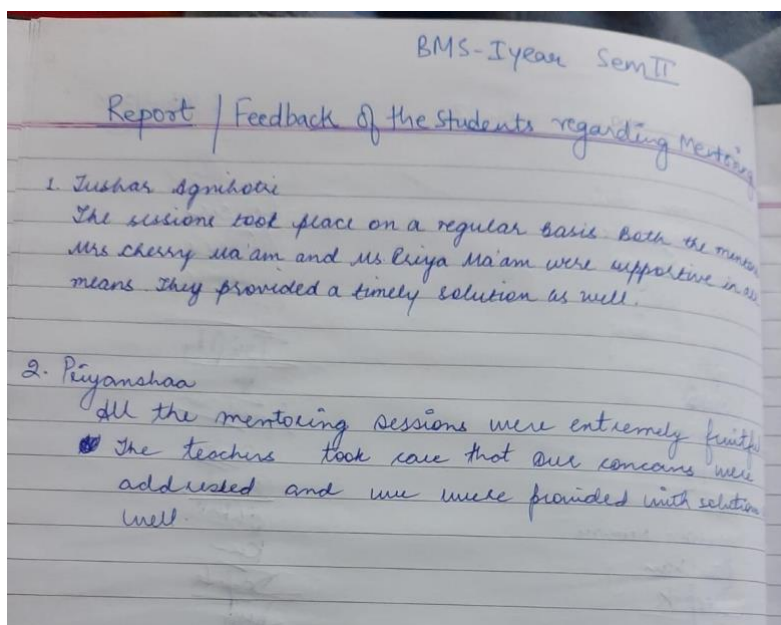 BMS-I year Sem II
Report / Feedback of the Students regarding Mentoring
1. Tushar Agnihotri
The sessions took place on a regular basis Both the mentor
Mrs cherry Ma'am and Ms Priya Ma'am were supportive in all
means They provided a timely solution as well.
2. Priyanshaa
All the mentoring sessions were extremely fruitful
The teachers took care that our concerns were
addressed and we were provided with solution
well.